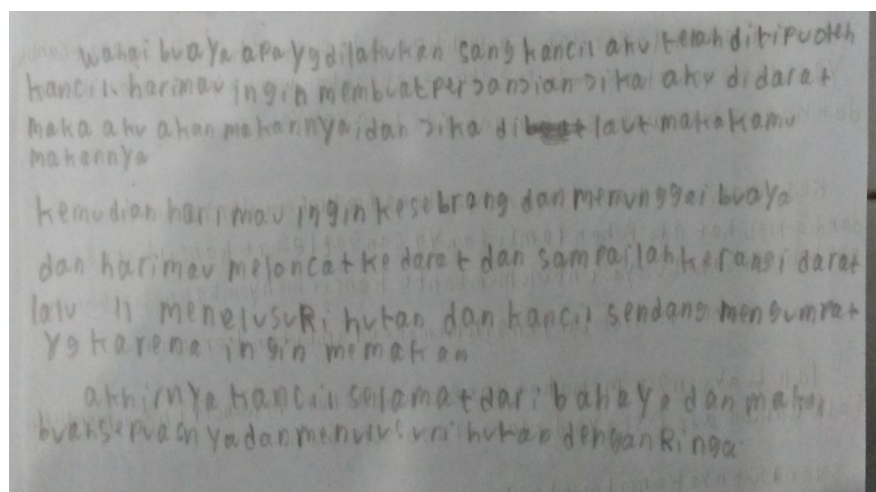 wahai buaya apa yg dilakukan sang kancil aku telah ditipu oleh
kancil. harimau ingin membuat persansian sika aku didarat
maka aku akan makannya, dan sika di laut maka kamu
makannya
kemudian harimau ingin kesebrang dan menunggai buaya
dan harimau meloncat ke darat dan sampailah keransi darat
lalu menelusuRi hutan dan kancil sendang mengumpat
yg karena ingin memakan
akhirnya kancil selamat dari bahaya dan makan
buah sepuasnya dan menulusuri hutan dengan Ringa